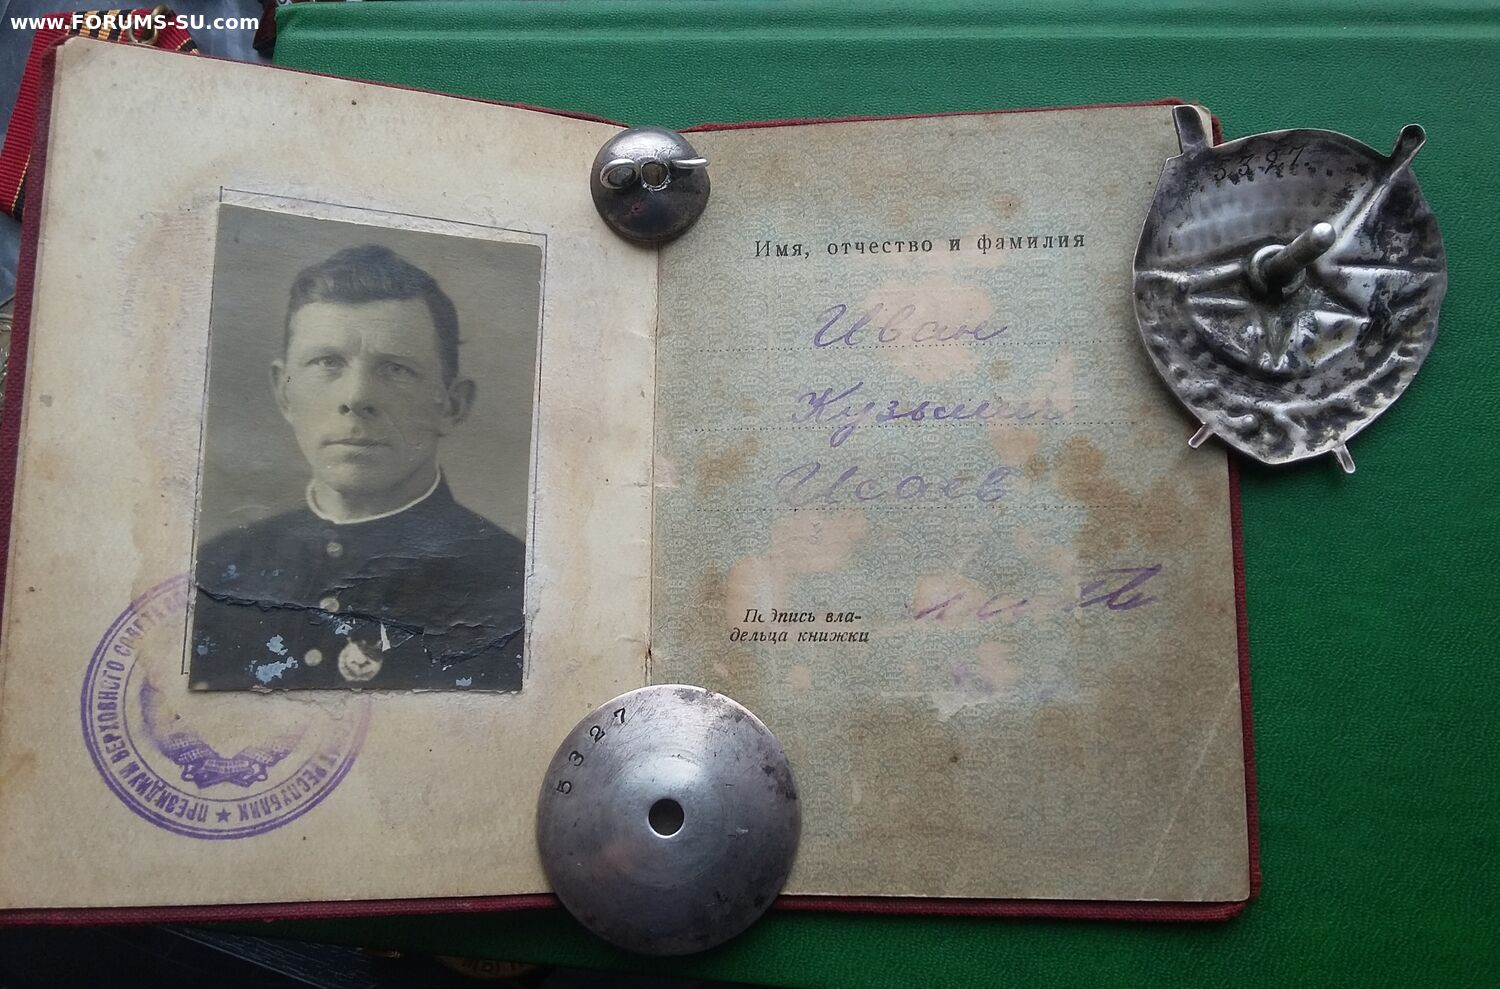 www.FORUMS-SU.com
5327
Имя, отчество и фамилия
Иван
Кузьмич
Исаев
Подпись вла-
дельца книжки
ПРЕЗИДИУМ ВЕРХОВНОГО СОВЕТА
РЕСПУБЛИК
5327